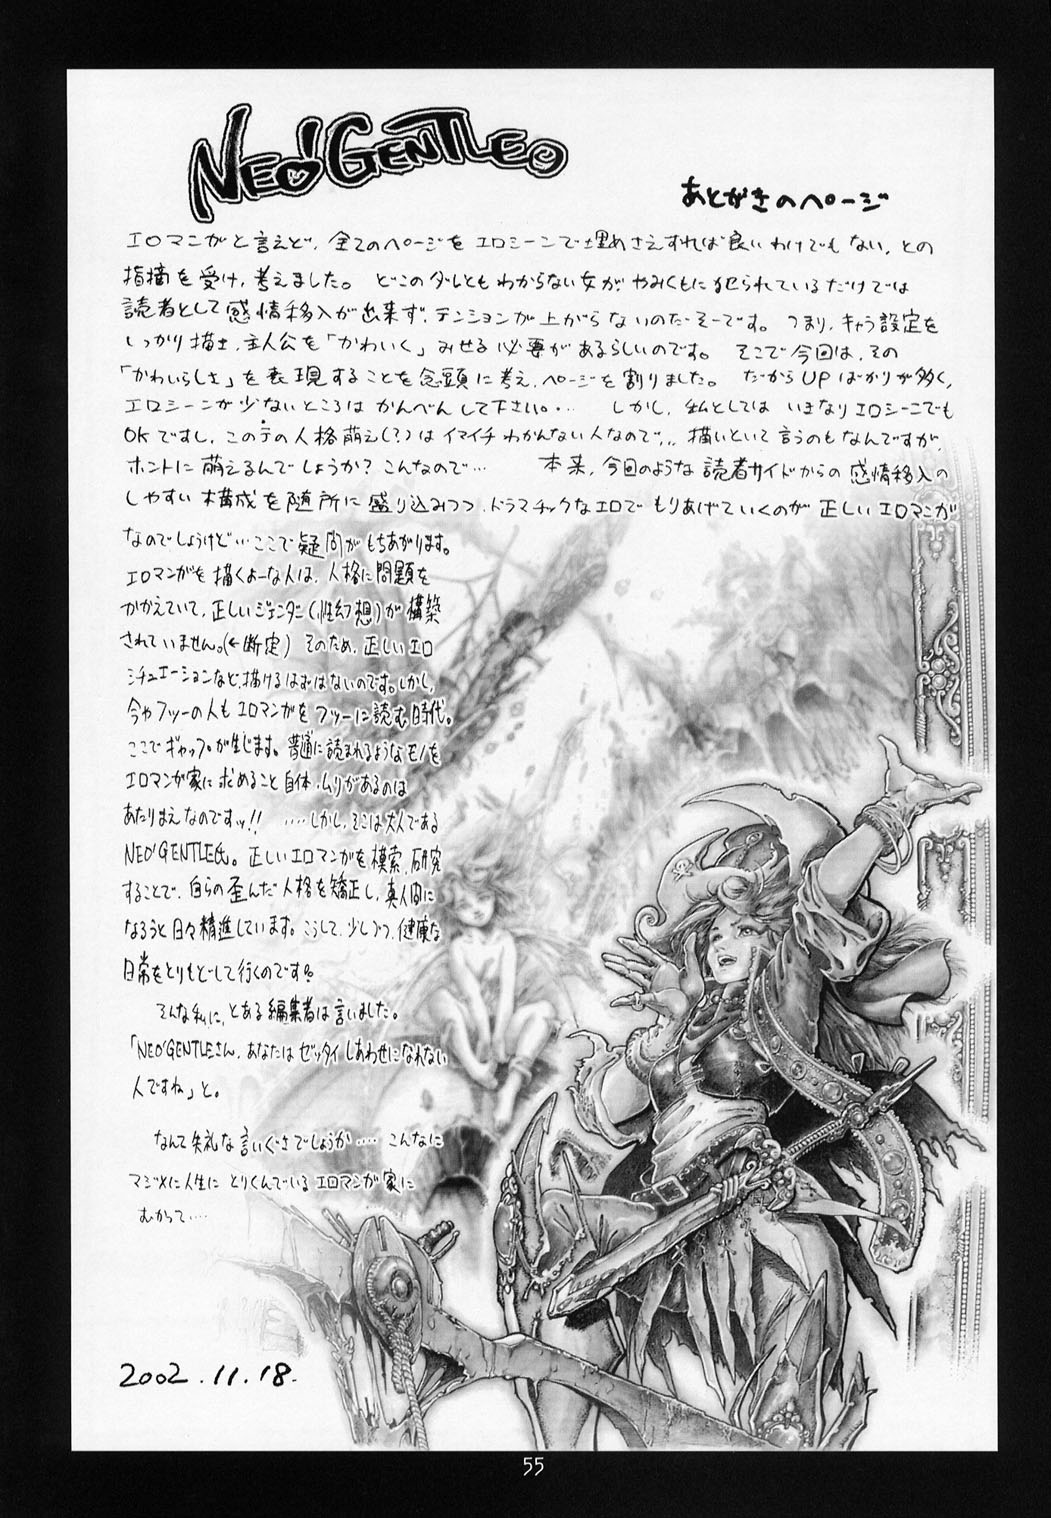 NEO'GENTLE
あとがきのページ
エロマンガと言えど、全てのページをエロシーンで埋めさえすれば良いわけでもない、との
指摘を受け、考えました。 どこのダレともわからない女が、やみくもに犯られているだけでは
読者として感情移入が出来ず、テンションが上がらないのだそーです。 つまり、キャラ設定を
しっかり描き、主人公を「かわいく」みせる必要があるらしいのです。 そこで今回は、その
「かわいらしさ」を表現することを念頭に考え、ページを割りました。 だからUPばかりが多く、
エロシーンが少ないところはかんべんして下さい。… しかし、私としては いきなりエロシーンでも
OKですし、このテの人格萌え(?)はイマイチわかんない人なので… 描いといて言うのもなんですが、
ホントに萌えるんでしょうか? こんなので… 本来、今回のような読者サイドからの感情移入の
しやすい構成を随所に盛り込みつつ、ドラマチックなエロでもりあげていくのが正しいエロマンガ
なのでしょうけど…ここで疑問がもちあがります。
エロマンガを描くよーな人は、人格に問題を
かかえていて、正しいジェンダー(性幻想)が構築
されていません。(←断定) そのため、正しいエロ
シチュエーションなど、描けるはずはないのです。しかし、
今やフツーの人もエロマンガをフツーに読む時代。
ここでギャップが生じます。普通に読まれるようなモノを
エロマンガ家に求めること自体、ムリがあるのは
あたりまえなのですッ!! ……しかし、そこは大人である
NEO'GENTLE氏。正しいエロマンガを模索、研究
することで、自らの歪んだ人格を矯正し、真人間に
なろうと日々精進しています。こうして、少しづつ、健康な
日常をとりもどして行くのです。
そんな私に、とある編集者は言いました。
「NEO'GENTLEさん、あなたはゼッタイしあわせになれない
人ですね」と。
なんて失礼な言いぐさでしょうか…… こんなに
マジメに人生にとりくんでいるエロマンガ家に
むかって……
2002.11.18.
55